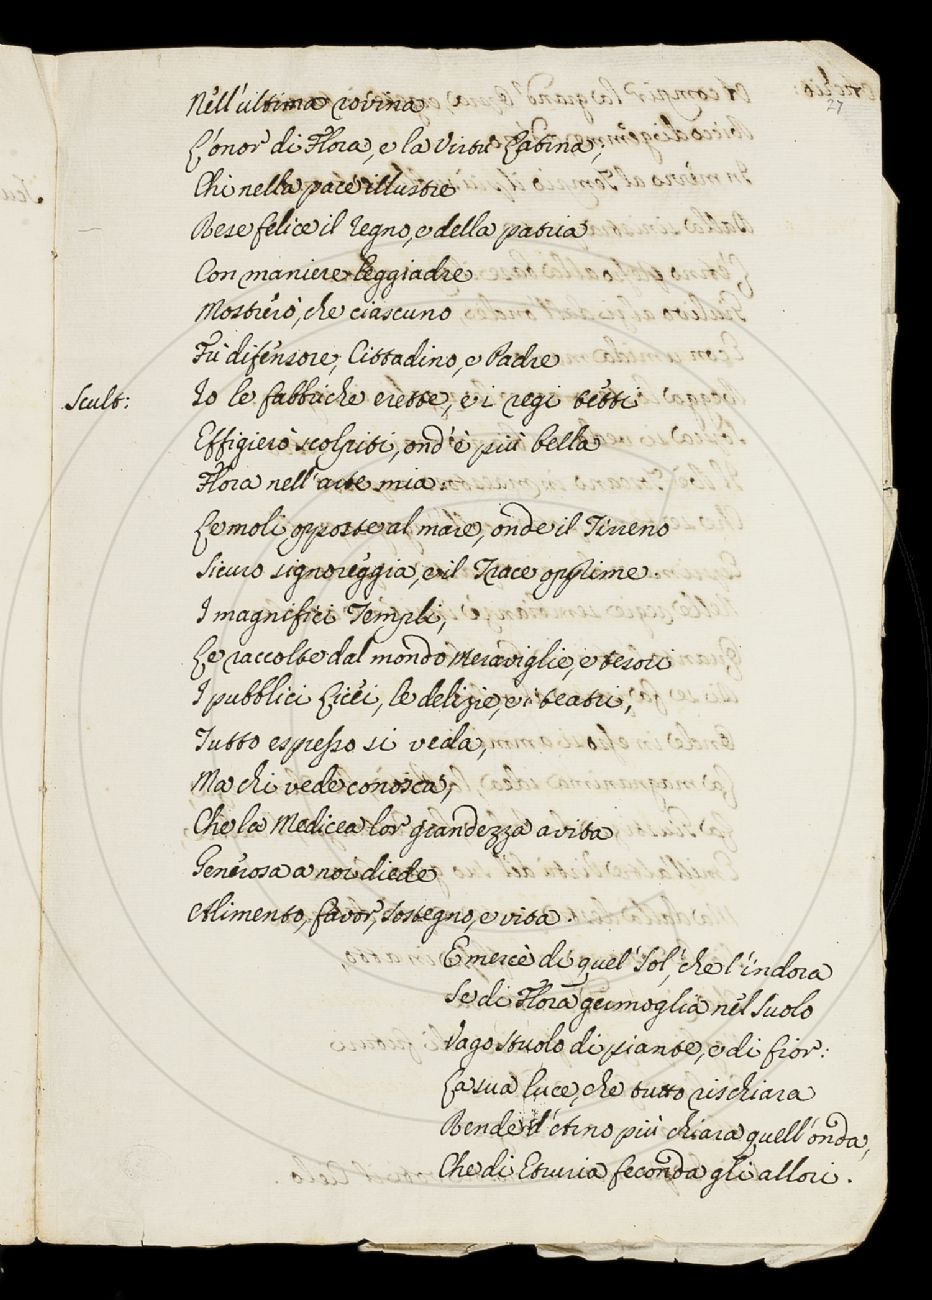 27
Nell'ultima rovina
L'onor di Flora, e la Virtù Latina,
Chi nella pace illustre
Rese felice il regno, e della patria
Con maniere leggiadre
Mostrerò, che ciascuno
Fù difensore, Cittadino, e Padre
Scult: Io le fabbriche erette, e i regi tetti
Effigierò scolpiti, ond'è più bella
Flora nell'arte mia.
Le moli opposte al mare, onde il Tirreno
Sicuro signoreggia, e il Trace opprime.
I magnifici Templi,
Le raccolte dal mondo Meraviglie, e tesori
I pubblici Licei, le delizie, e i teatri,
Tutto espresso si veda,
Ma chi vede conosca,
Che la Medicea lor grandezza avita
Generosa a noi diede
Alimento, favor, sostegno, e vita.
E mercè di quel Sol, che l'indora
Se di Flora germoglia nel suolo
Vago stuolo di piante, e di fior:
La sua luce, che tutto rischiara
Rende d'Arno più chiara quell'onda,
Che di Etruria feconda gli allori.